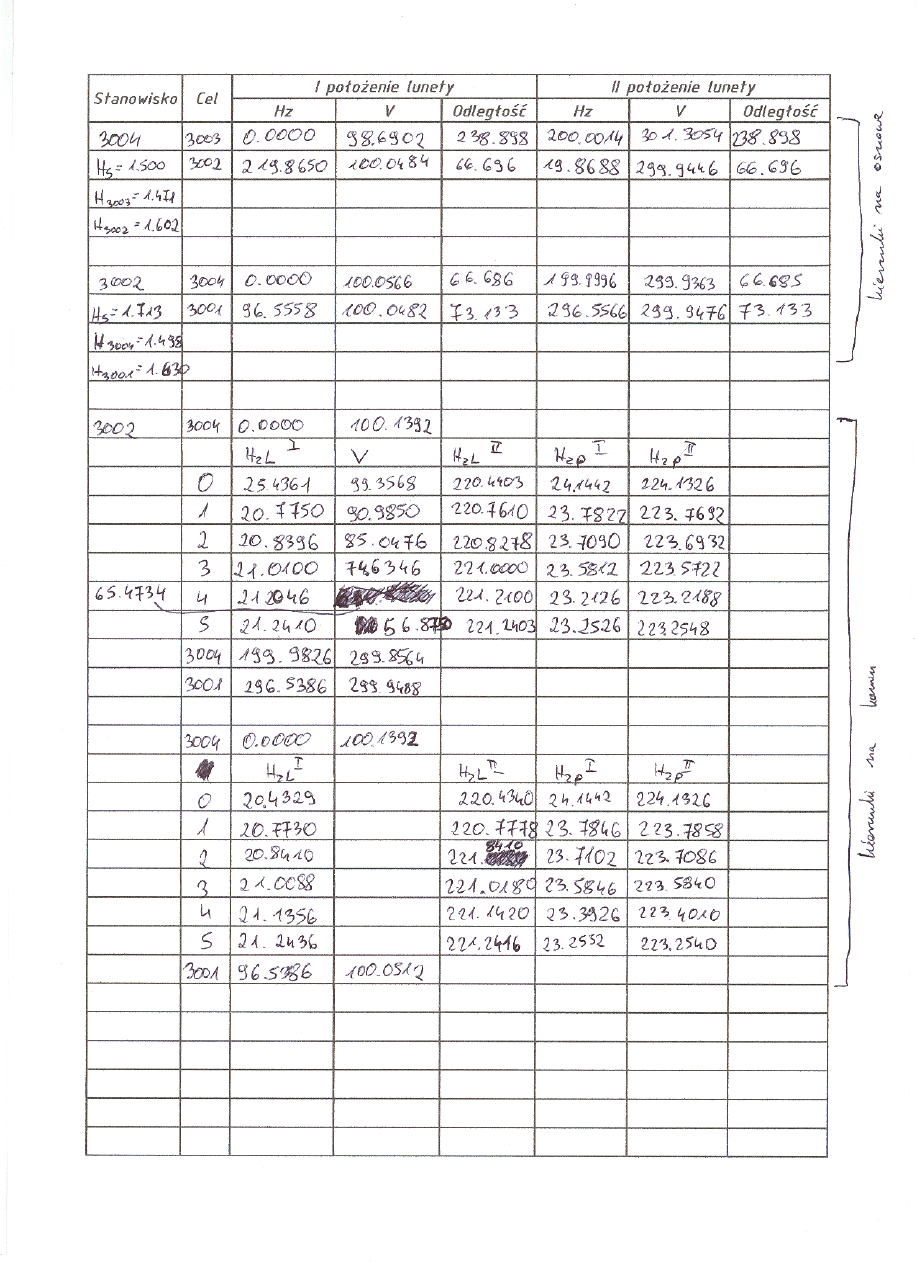 I położenie lunety II położenie lunety
Stanowisko Cel Hz V Odległość Hz V Odległość
3004 3003 0.0000 98.6902 238.898 200.0014 301.3054 238.898
Hs=1.500 3002 219.8650 100.0484 66.696 19.8688 299.9446 66.696
H3003=1.471
H3002=1.602
3002 3004 0.0000 100.0566 66.686 199.9996 299.9363 66.685
Hs=1.713 3001 96.5558 100.0482 73.133 296.5566 299.9476 73.133
H3004=1.498
H3001=1.630
kierunki na osnowę
3002 3004 0.0000 100.1392
HzL I V HzL II HzP I HzP II
0 25.4361 99.3568 220.4403 24.1442 224.1326
1 20.7750 90.9850 220.7610 23.7822 223.7692
2 20.8396 85.0476 220.8278 23.7090 223.6932
3 21.0100 74.6346 221.0000 23.5812 223.5722
65.4734 4 21.2046 221.2100 23.2126 223.2188
5 21.2410 56.8750 221.2403 23.2526 223.2548
3004 199.9826 299.8564
3001 296.5386 299.9488
3004 0.0000 100.1392
HzL I HzL II HzP I HzP II
0 20.4329 220.4340 24.1442 224.1326
1 20.7730 220.7778 23.7846 223.7858
2 20.8410 221.8410 23.7102 223.7086
3 21.0088 221.0180 23.5846 223.5840
4 21.1356 221.1420 23.3926 223.4010
5 21.2436 221.2416 23.2552 223.2540
3001 96.5386 100.0512
kierunki na komin